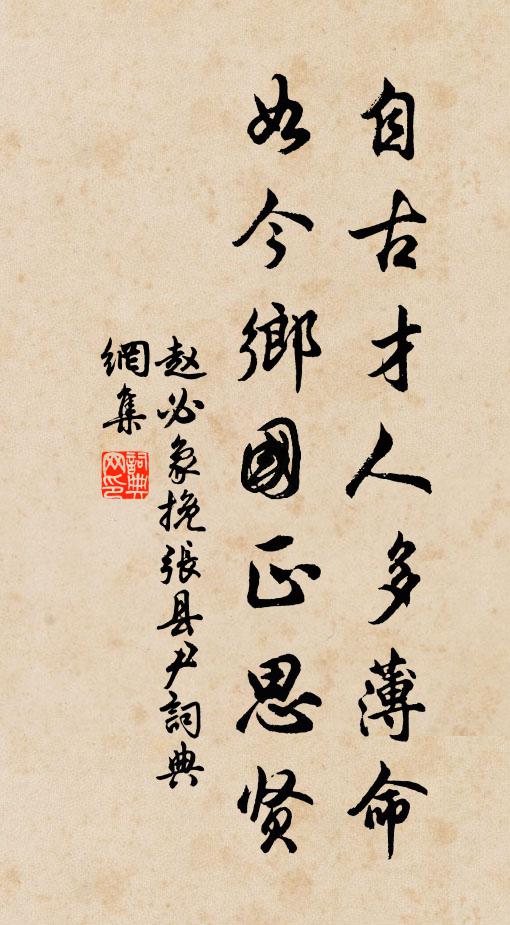 自古才人多薄命
如今鄉國正思贤
赵必象挽張县尹詞典
網集
詞典網印